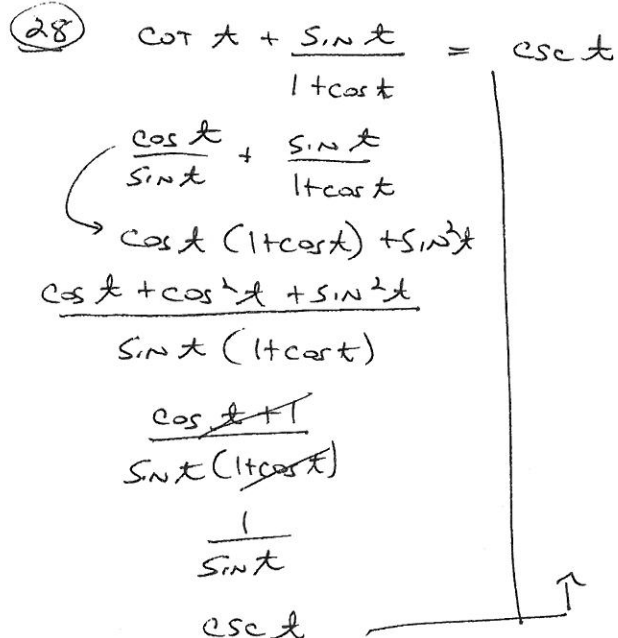 28 cot t + sin t / 1 + cos t = csc t
cos t / sin t + sin t / 1+cos t
cos t (1+cos t) + sin²t
cos t + cos²t + sin²t / sin t (1+cos t)
cos t + 1 / sin t (1+cos t)
1 / sin t
csc t